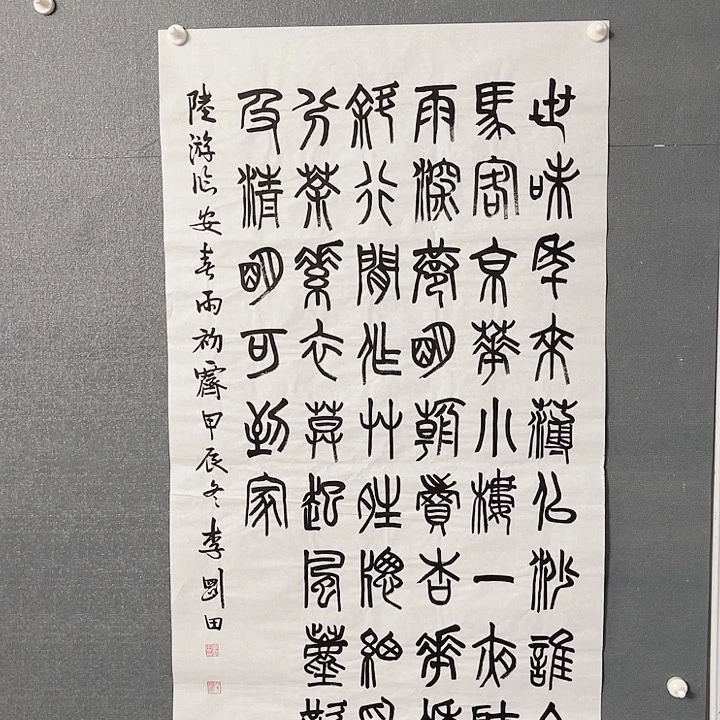 世味年來薄似沙誰
馬客京華小樓一夜聽
雨深巷明朝賣杏華
斜行閒作艸晴窗細乳
分茶素衣莫起風塵歎
及清明可到家
陸游臨安春雨初霽甲辰冬李剛田